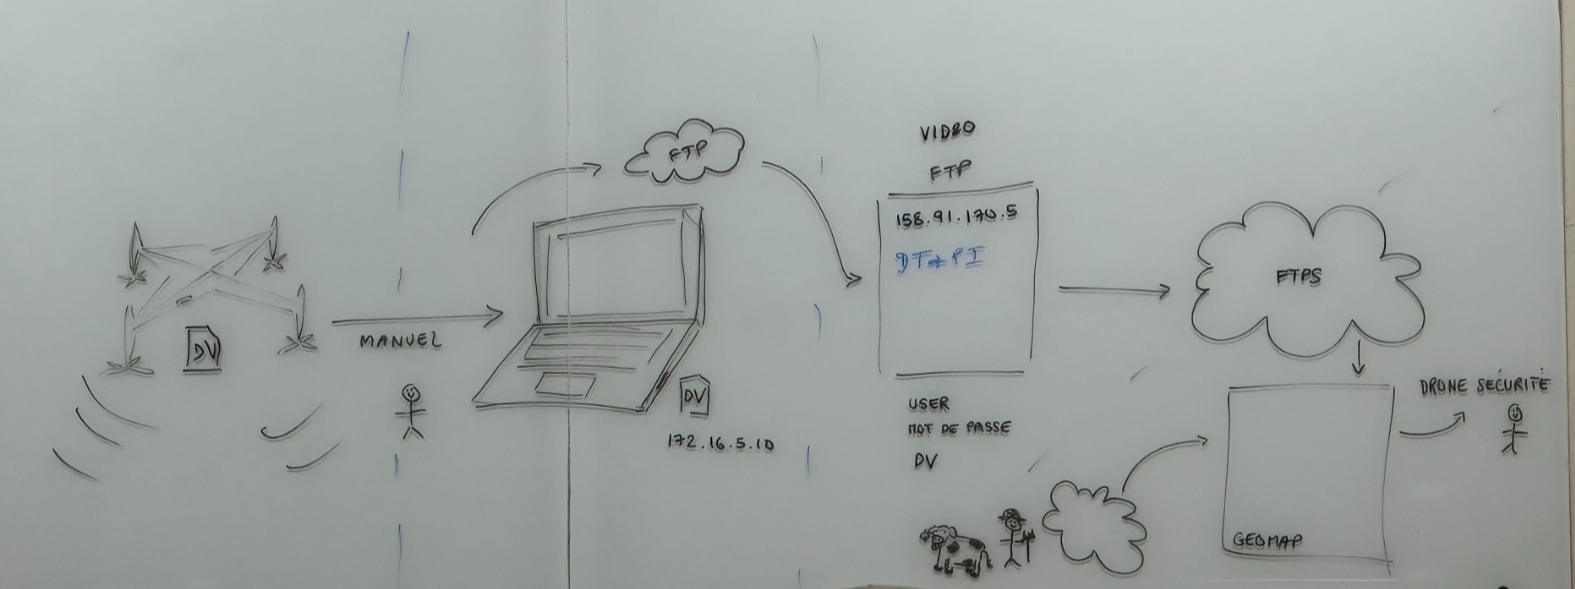 DV
MANUEL
FTP
DV
172.16.5.10
VIDEO
FTP
158.91.170.5
USER
MOT DE PASSE
DV
FTPS
DRONE SÉCURITÉ
GEOMAP